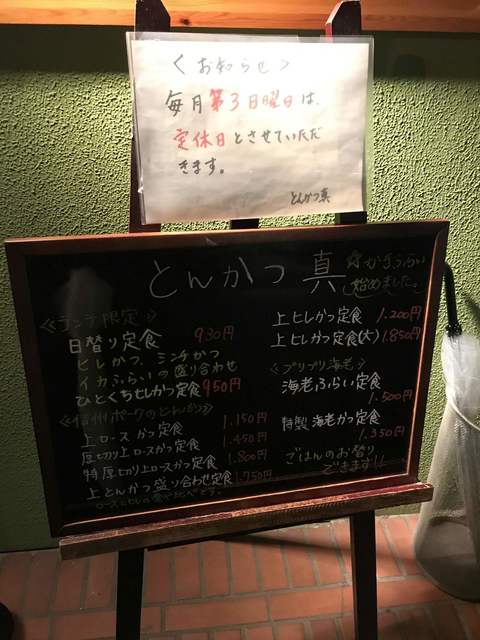 ＜お知らせ＞
毎月第3日曜日は、
定休日とさせていただ
きます。
とんかつ真
とんかつ 真
☆かきふらい
始めました。
≪ランチ限定≫
日替り定食 930円
ヒレかつ、ミンチかつ
イカふらいの盛り合わせ
ひとくちヒレかつ定食 950円
≪信州ポークのとんかつ≫
上ロースかつ定食 1.150円
厚切り上ロースかつ定食 1.450円
特厚切り上ロースかつ定食 1.800円
上とんかつ盛り合わせ定食 1.750円
ロースとヒレの食べ比べです。
上ヒレかつ定食 1.200円
上ヒレかつ定食(大) 1.850円
≪プリプリ海老≫
海老ふらい定食
1.500円
特製 海老かつ定食
1.350円
ごはんのお替り
できます!!